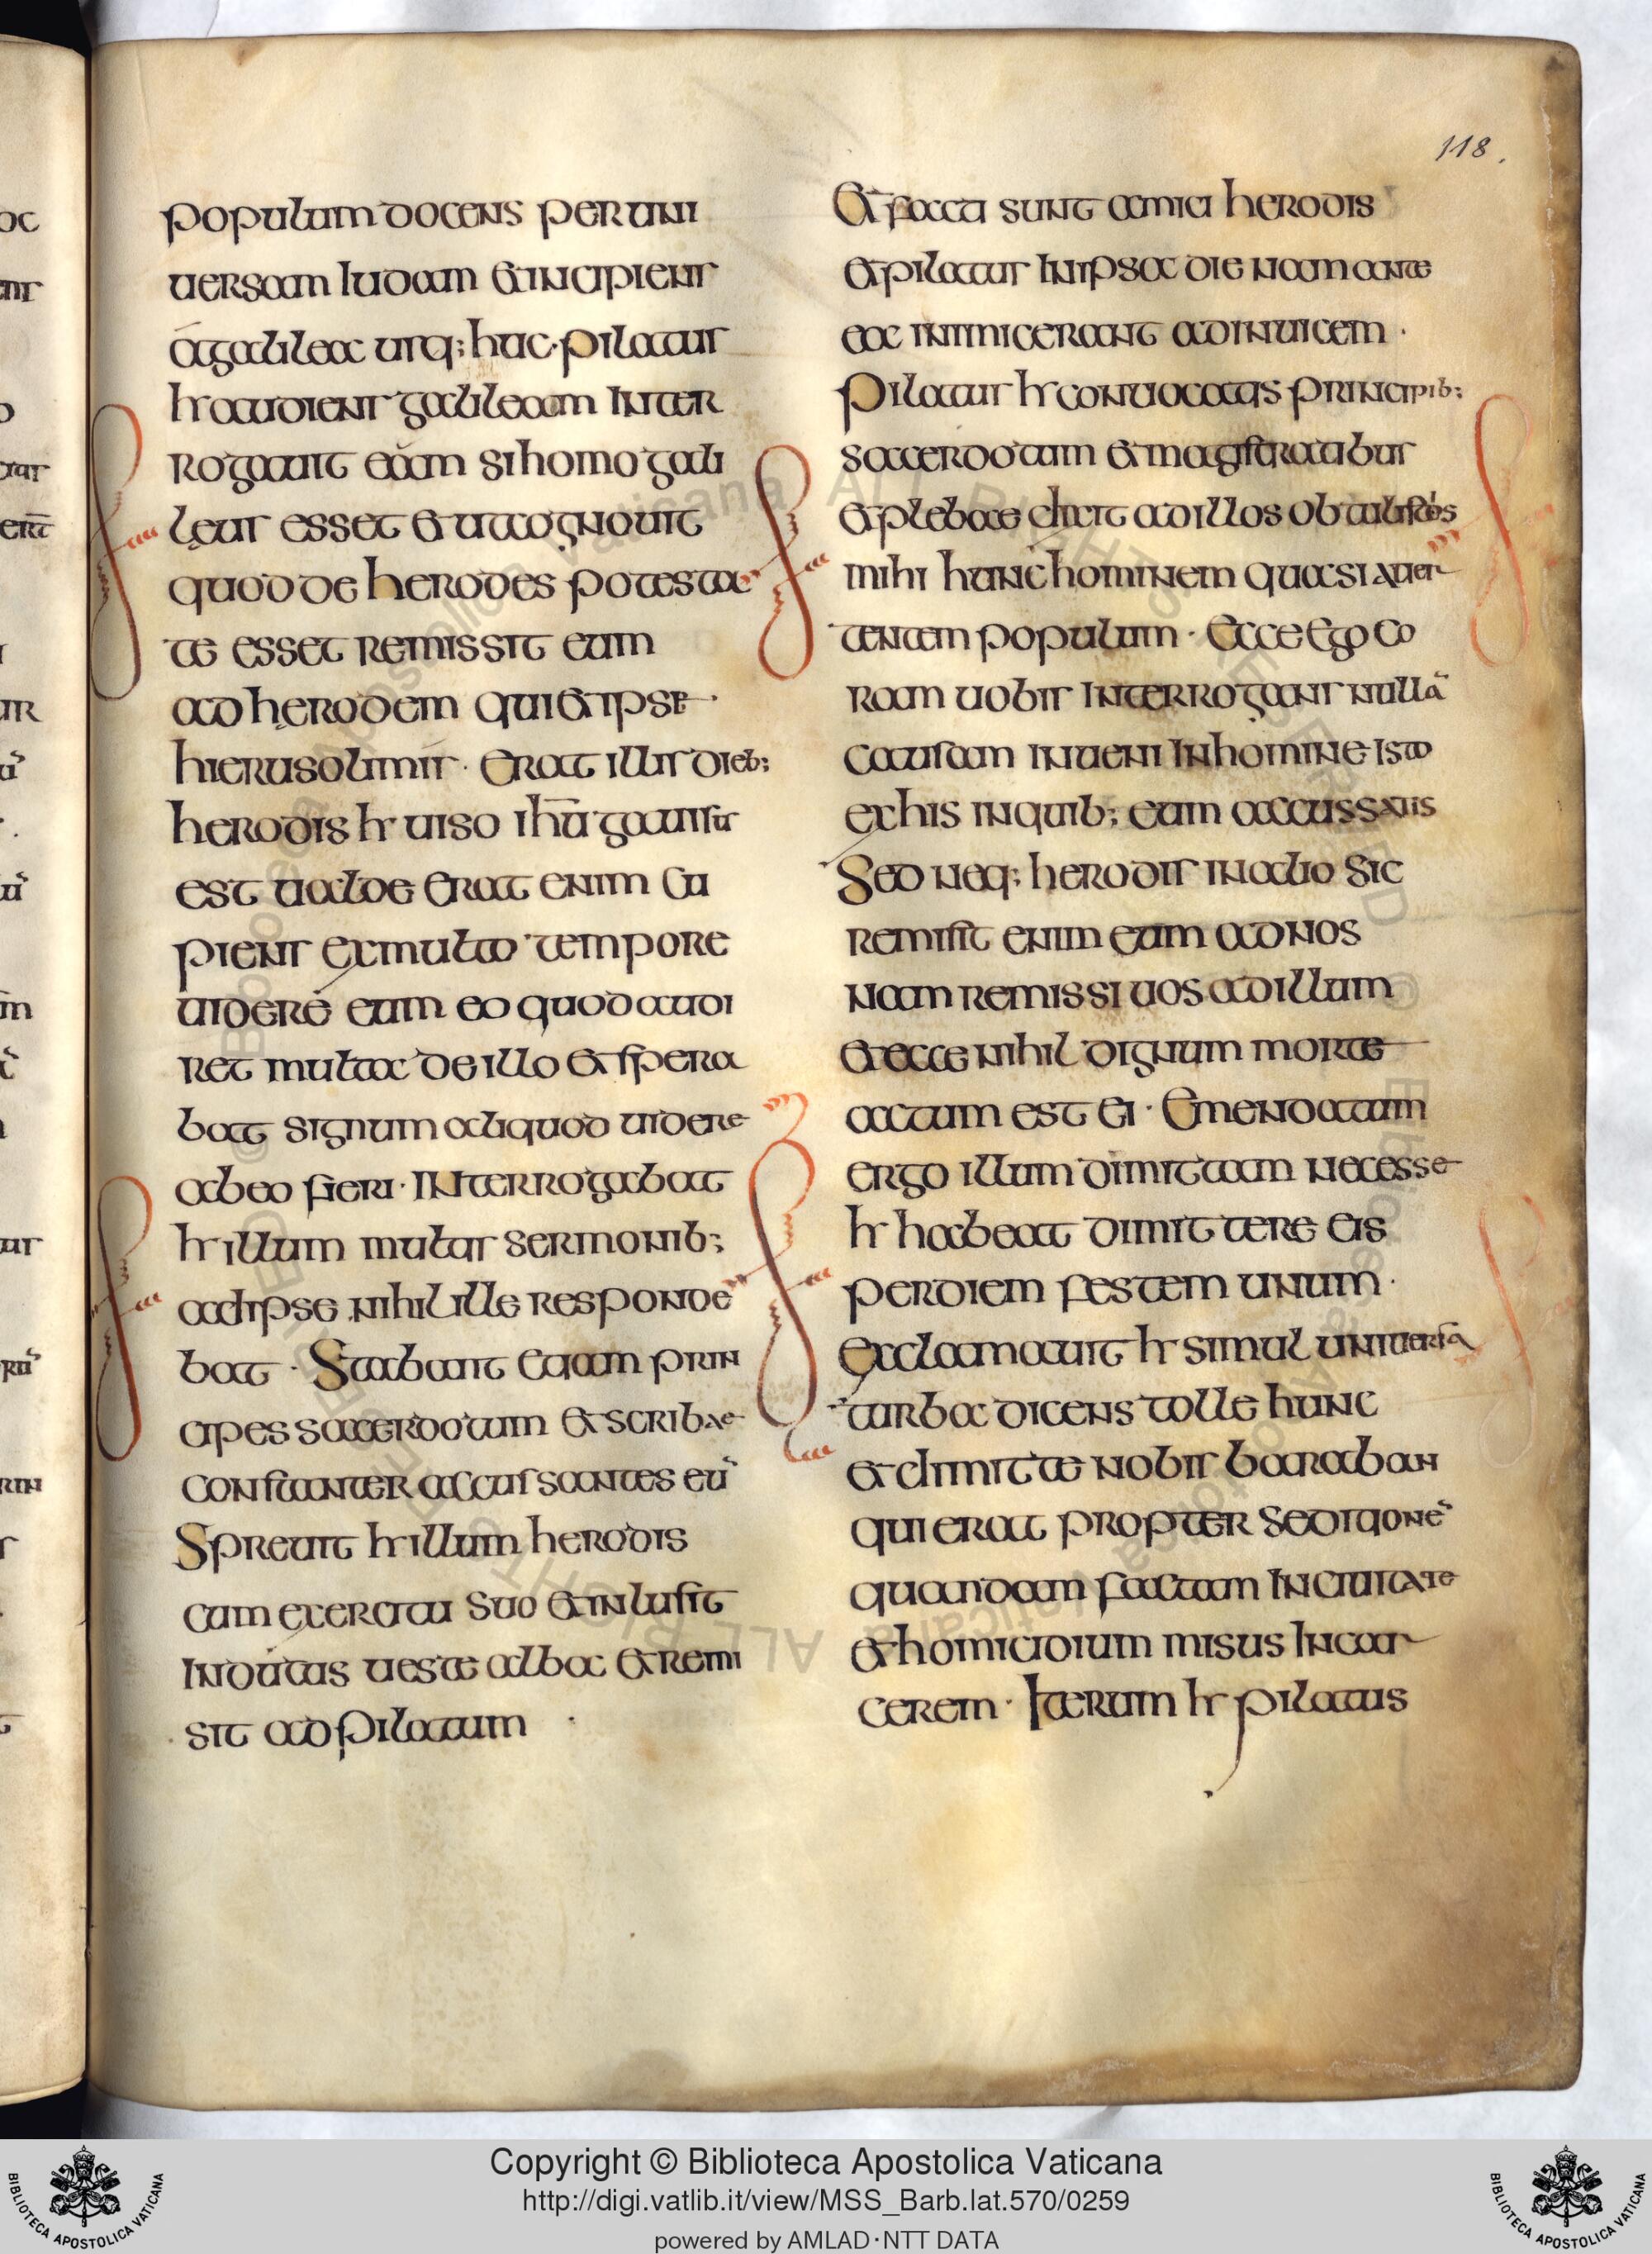 118.
populum docens per uni
uersam iudam et incipiens
a galilea usq; huc. pilatus
hr audiens galileam inter
rogauit eam si homo gali
leus esset et ut cognouit
quod de herodes potesta
te esset remissit eum
ad herodem qui et ipse
hierusolimis. erat illis dieb;
herodis hr uiso ihu gauisus
est ualde erat enim cu
piens ex multo tempore
uidere eum eo quod audi
ret multa de illo et spera
bat signum aliquod uidere
ab eo fieri. Interrogabat
hr illum multis sermonib;
ad ipse nihil ille responde
bat. Stabant etiam prin
cipes sacerdotum et scribae
constanter accussantes eū
Spreuit hr illum herodis
cum exercitu suo et inlusit
indutus ueste alba et remi
sit ad pilatum .
Et facti sunt amici herodis
et pilatus in ipsa die nam ante
ea inimici erant ad inuicem .
Pilatus hr conuocatis principib;
sacerdotum et magistratibus
et plebae dixit ad illos obtulistis
mihi hunc hominem quasi auer
tentem populum. Ecce ego co
ram uobis interrogans nullā
causam inueni in homine isto
ex his in quib; eum accussatis
Sed neq; herodis in alio sic
remisit enim eum ad nos
nam remissi uos ad illum
et ecce nihil dignum morte
actum est ei. Emendatum
ergo illum dimittam necesse
hr habeat dimittere eis
per diem festem unum .
exclamauit hr simul uniuersa
turba dicens tolle hunc
et dimitte nobis baraban
qui erat propter seditionē
quandam factam in ciuitate
et homicidium misus in car
cerem. Iterum hr pilatus
Copyright © Biblioteca Apostolica Vaticana
http://digi.vatlib.it/view/MSS_Barb.lat.570/0259
powered by AMLAD·NTT DATA
BIBLIOTECA APOSTOLICA VATICANA
BIBLIOTECA APOSTOLICA VATICANA